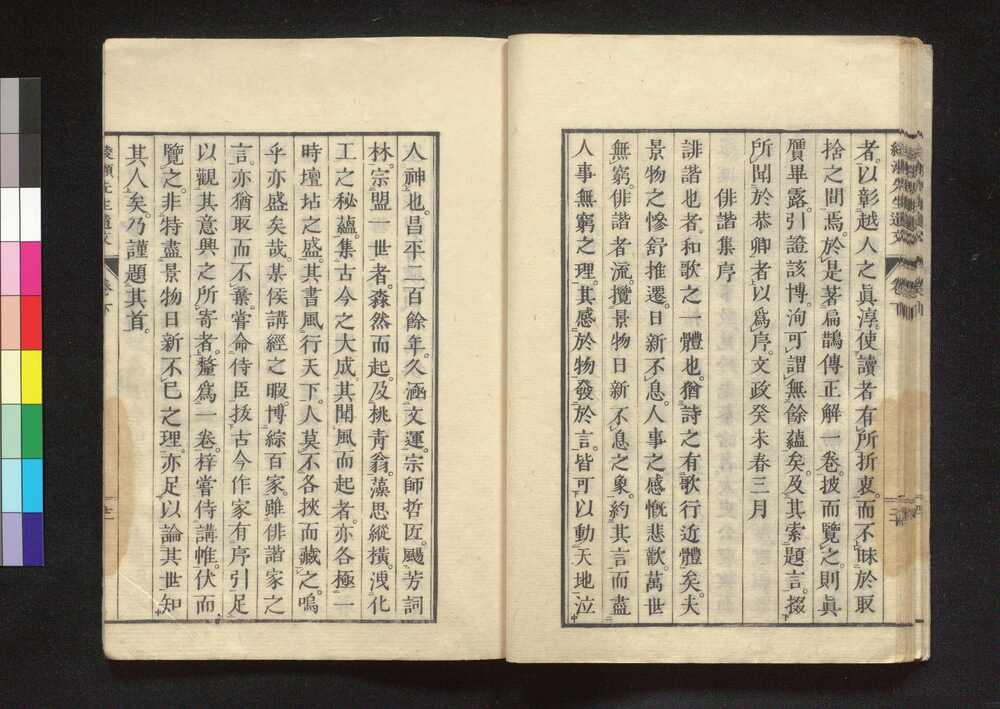 者。以彰越人之眞淳。使讀者有所折衷。而不昧於取
捨之間焉。於是著扁鵲傳正解一卷。披而覽之。則眞
贋畢露。引證該博。洵可謂無餘蘊矣。及其索題言。掇
所聞於恭卿者。以爲序。文政癸未春三月
俳諧集序
誹諧也者。和歌之一體也。猶詩之有歌行近體矣。夫
景物之慘舒推遷。日新不息。人事之感慨悲歡。萬世
無窮。俳諧者流。攬景物日新不息之象。約其言而盡
人事無窮之理。其感於物發於言。皆可以動天地泣
人神也。昌平二百餘年。久涵文運。宗師哲匠。颺芳詞
林。宗盟一世者。森然而起。及桃靑翁。藻思縱橫。洩化
工之秘蘊。集古今之大成。其聞風而起者。亦各極一
時壇坫之盛。其書風行天下。人莫不各挾而藏之。嗚
乎亦盛矣哉。某侯講經之暇。博綜百家。雖俳諧家之
言。亦猶取而不棄。嘗命侍臣拔古今作家有序引足
以觀其意興之所寄者。釐爲一卷。梓嘗侍講帷。伏而
覽之。非特盡景物日新不已之理。亦足以論其世知
其人矣。乃謹題其首。
先生遺文 卷下 十二